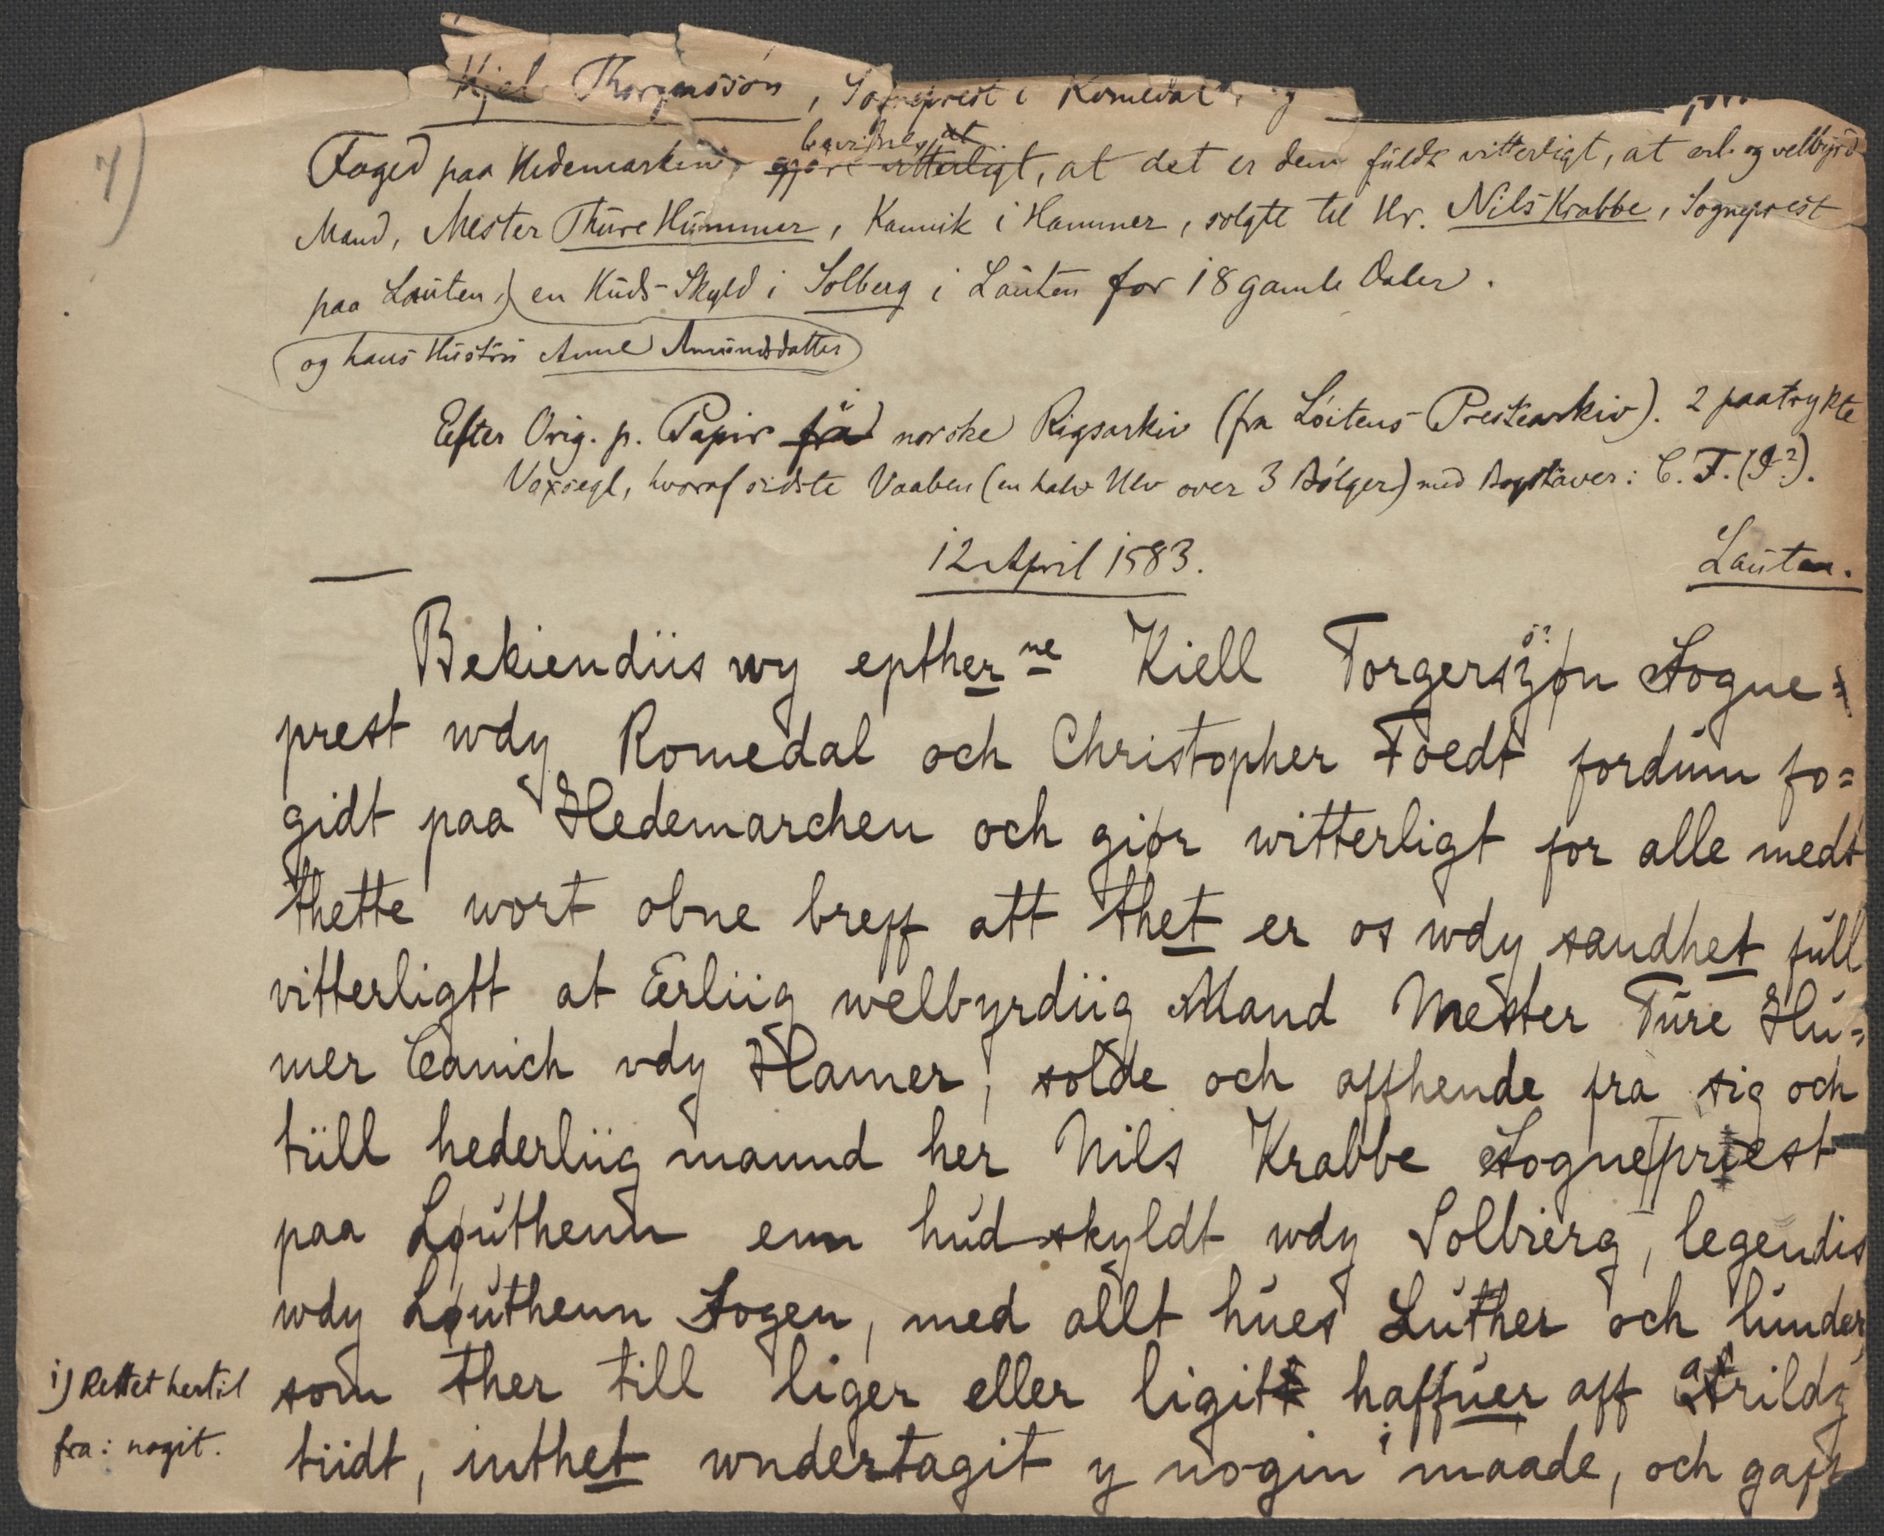 7)
Kjel Thorgerssøn, Sogneprest i Romedal
Foged paa Hedemarken, gjøre vitterligt, at det er dem fuldt vitterligt, at erl. og velbyrd.
bevidne, at
Mand, Mester Thure Hummer, Kannik i Hammer, solgte til Hr. Nils Krabbe, Sogneprest
paa Lauten, en Huds-Skyld i Solberg i Lauten for 18 gamle Daler.
og hans Hustru Anne Amundsdatter
Efter Orig. p. Papir i norske Rigsarkiv (fra Löitens Prestearkiv). 2 paatrykte
Voxsegl, hvoraf sidste Vaaben (en halv Ulv over 3 Bölger) med Bogstaver: C. F. (I?).
12 April 1583.
Lauten.
Bekiendiis wy epther ne Kiell Torgersøn Sogne=
prest wdy Romedal och Christopher Foedt fordum fo=
gidt paa Hedemarchen och giør witterligt for alle medt
thette wort obne breff att thet er os wdy sandhet full
vitterligtt at Erliig welbyrdiig Mand Mester Ture Hu=
mer Canich vdy Hamer, solde och affhende fra sig och
tiill hederliig mannd her Nils Krabbe Sognepriest
paa Løuthenn enn hudskyldt wdy Solbierg, legendis
wdy Løuthenn Sogen, med allt hues Luther och lunder,
som ther till liger eller ligit haffuer aff arildz
tiidt, inthet wndertagit y nogin i maade, och gaff
1) Rettet hertil
fra: nogit.